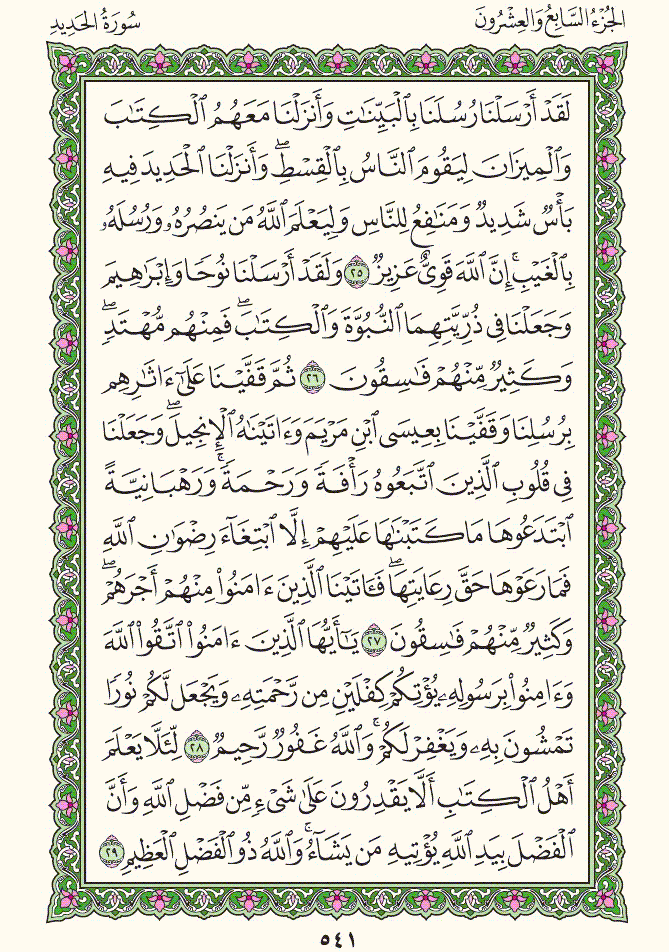 الجزء السابع والعشرون
سورة الحديد
لَقَدْ أَرْسَلْنَا رُسُلَنَا بِٱلْبَيِّنَٰتِ وَأَنزَلْنَا مَعَهُمُ ٱلْكِتَٰبَ
وَٱلْمِيزَانَ لِيَقُومَ ٱلنَّاسُ بِٱلْقِسْطِۖ وَأَنزَلْنَا ٱلْحَدِيدَ فِيهِ
بَأْسٌ شَدِيدٌ وَمَنَٰفِعُ لِلنَّاسِ وَلِيَعْلَمَ ٱللَّهُ مَن يَنصُرُهُۥ وَرُسُلَهُۥ
بِٱلْغَيْبِۚ إِنَّ ٱللَّهَ قَوِىٌّ عَزِيزٌ ٢٥ وَلَقَدْ أَرْسَلْنَا نُوحًا وَإِبْرَٰهِيمَ
وَجَعَلْنَا فِى ذُرِّيَّتِهِمَا ٱلنُّبُوَّةَ وَٱلْكِتَٰبَۖ فَمِنْهُم مُّهْتَدٍۖ
وَكَثِيرٌ مِّنْهُمْ فَٰسِقُونَ ٢٦ ثُمَّ قَفَّيْنَا عَلَىٰٓ ءَاثَٰرِهِم
بِرُسُلِنَا وَقَفَّيْنَا بِعِيسَى ٱبْنِ مَرْيَمَ وَءَاتَيْنَٰهُ ٱلْإِنجِيلَۖ وَجَعَلْنَا
فِى قُلُوبِ ٱلَّذِينَ ٱتَّبَعُوهُ رَأْفَةً وَرَحْمَةًۚ وَرَهْبَانِيَّةً
ٱبْتَدَعُوهَا مَا كَتَبْنَٰهَا عَلَيْهِمْ إِلَّا ٱبْتِغَآءَ رِضْوَٰنِ ٱللَّهِ
فَمَا رَعَوْهَا حَقَّ رِعَايَتِهَاۖ فَـَٔاتَيْنَا ٱلَّذِينَ ءَامَنُوا۟ مِنْهُمْ أَجْرَهُمْۖ
وَكَثِيرٌ مِّنْهُمْ فَٰسِقُونَ ٢٧ يَٰٓأَيُّهَا ٱلَّذِينَ ءَامَنُوا۟ ٱتَّقُوا۟ ٱللَّهَ
وَءَامِنُوا۟ بِرَسُولِهِۦ يُؤْتِكُمْ كِفْلَيْنِ مِن رَّحْمَتِهِۦ وَيَجْعَل لَّكُمْ نُورًا
تَمْشُونَ بِهِۦ وَيَغْفِرْ لَكُمْۚ وَٱللَّهُ غَفُورٌ رَّحِيمٌ ٢٨ لِّئَلَّا يَعْلَمَ
أَهْلُ ٱلْكِتَٰبِ أَلَّا يَقْدِرُونَ عَلَىٰ شَىْءٍ مِّن فَضْلِ ٱللَّهِ وَأَنَّ
ٱلْفَضْلَ بِيَدِ ٱللَّهِ يُؤْتِيهِ مَن يَشَآءُۚ وَٱللَّهُ ذُو ٱلْفَضْلِ ٱلْعَظِيمِ ٢٩
٥٤١